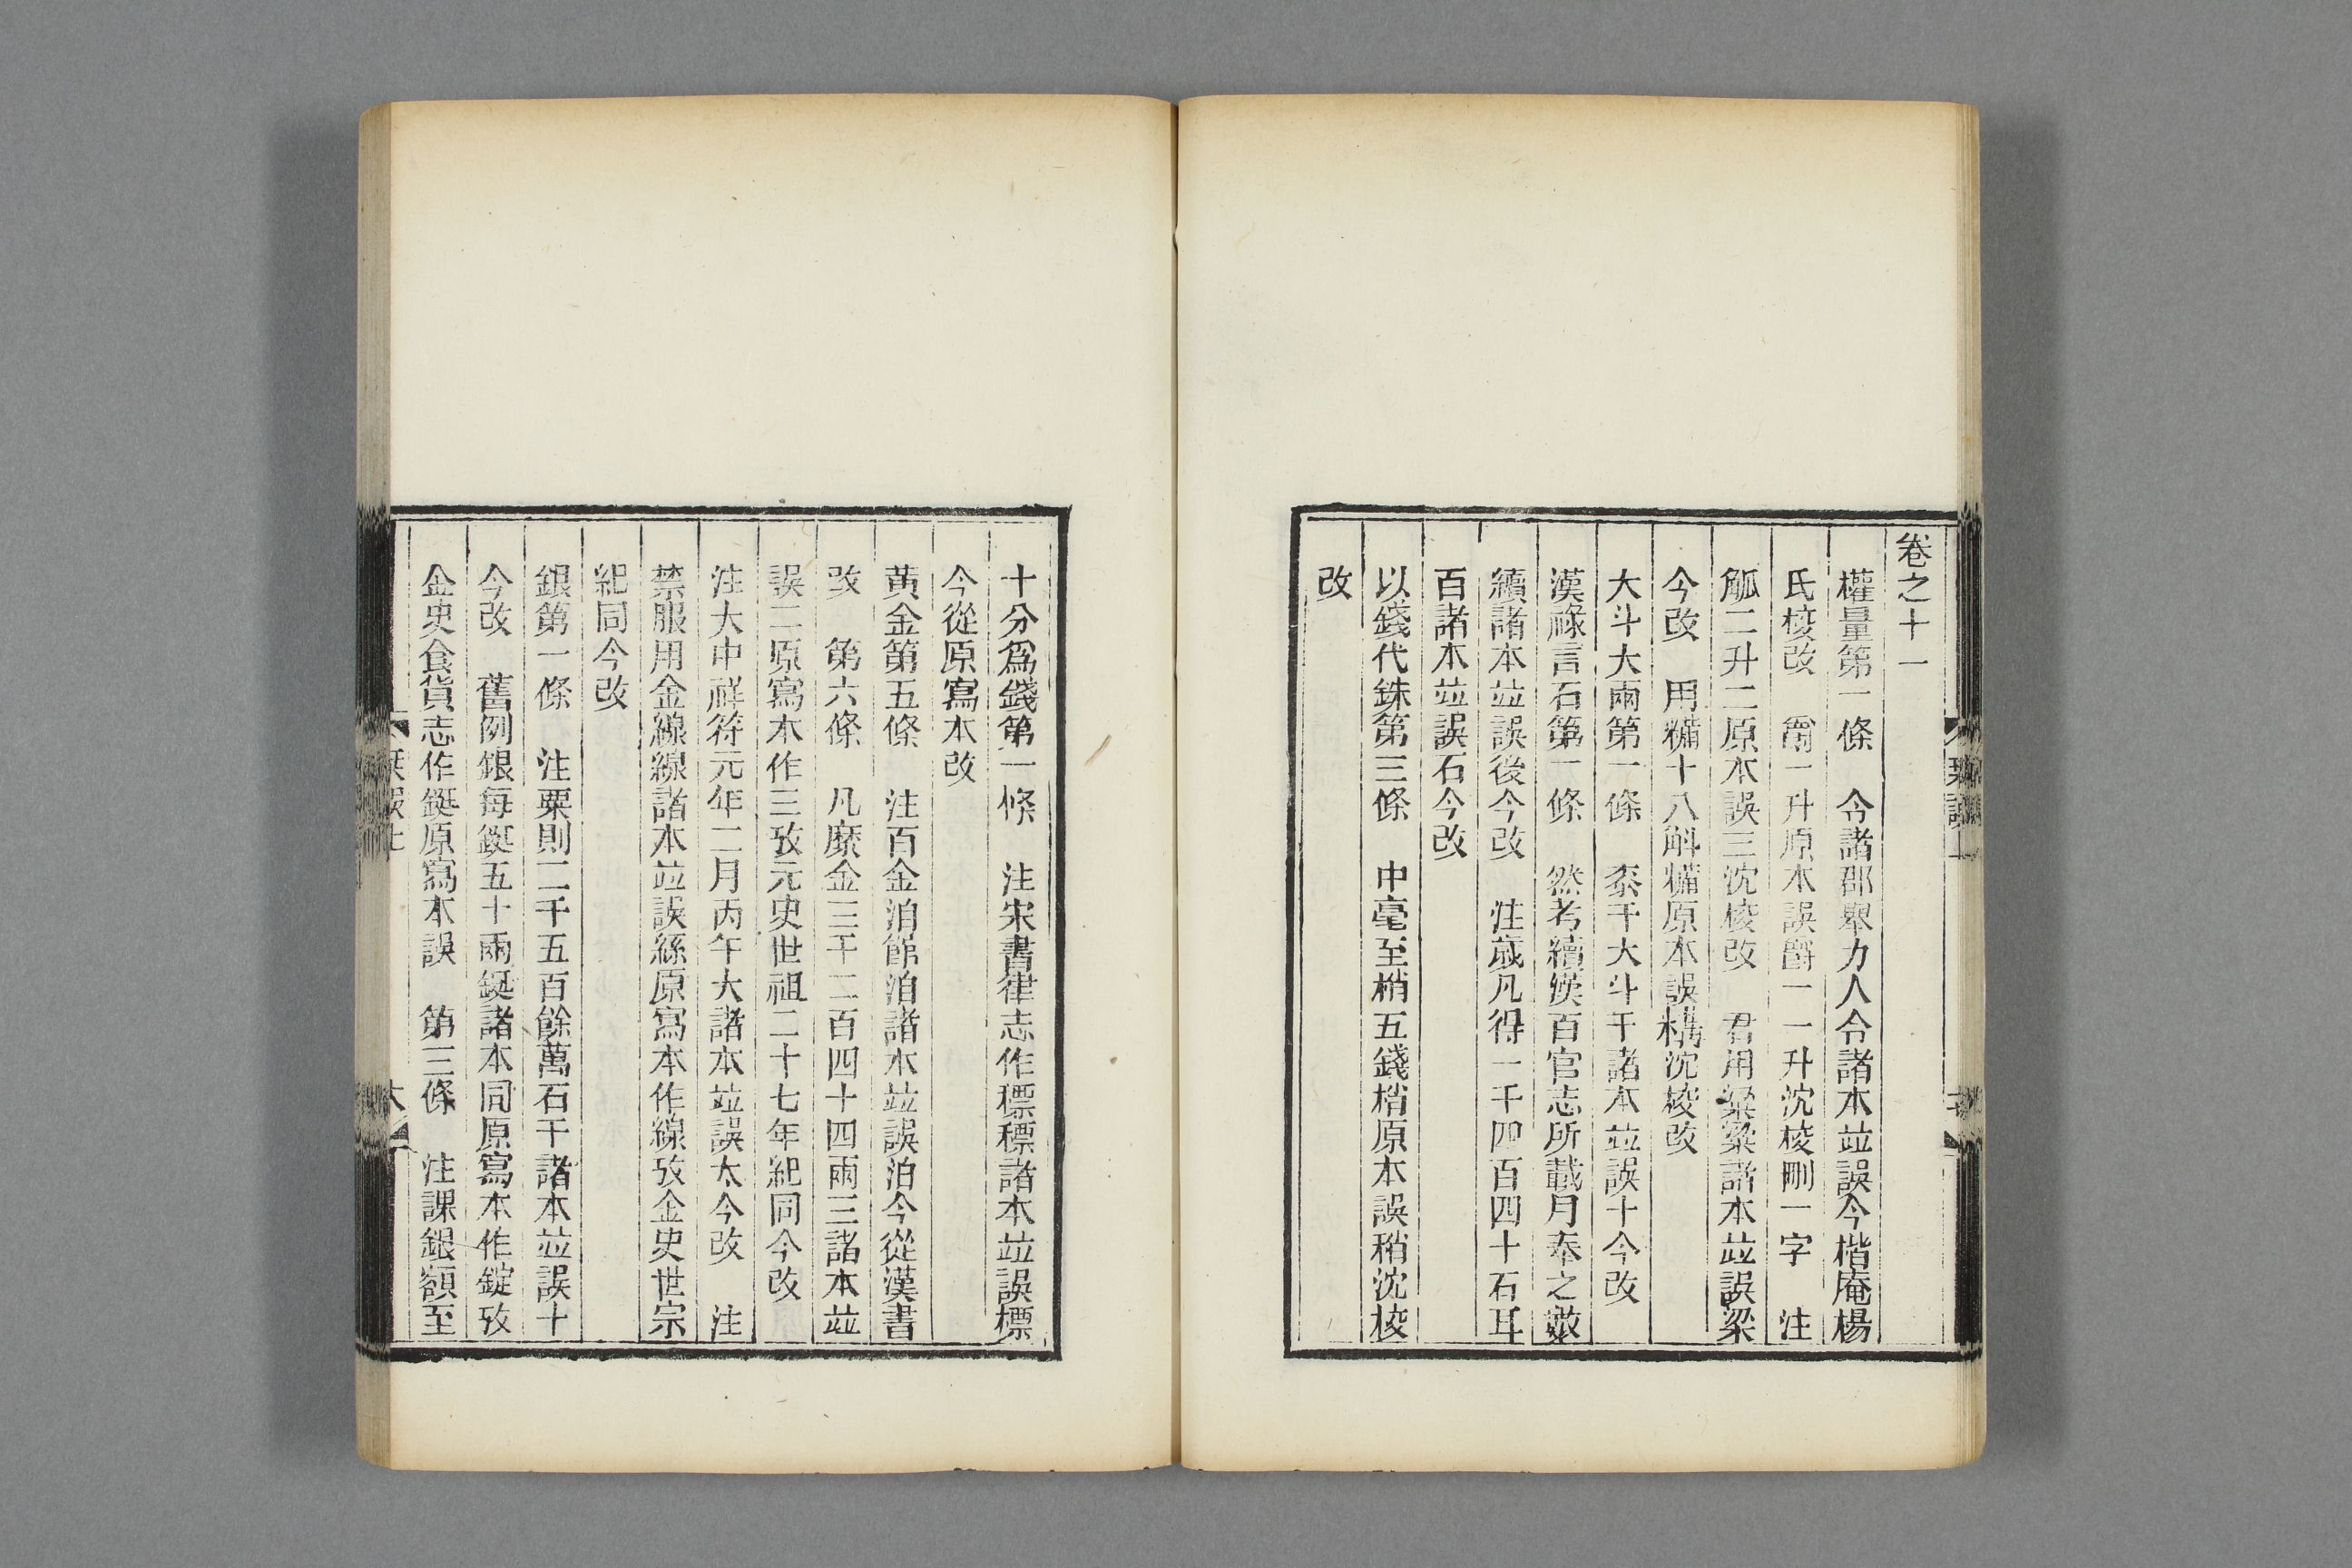 卷之十一
權量第一條　令諸郡舉力人令諸本竝誤今楷庵楊
氏校改　爵一升原本誤爵一一升沈校刪一字　注
觚二升二原本誤三沈校改　君用粱粱諸本竝誤梁
今改　用糒十八斛糒原本誤構沈校改
大斗大兩第一條　黍千大斗千諸本竝誤十今改
漢祿言石第一條　然考續漢百官志所載月奉之數
續諸本竝誤後今改　注歲凡得一千四百四十石耳
百諸本竝誤石今改
以錢代銖第三條　中毫至梢五錢梢原本誤稍沈校
改
十分爲錢第一條　注宋書律志作䅺䅺諸本竝誤標
今從原寫本改
黃金第五條　注百金洎節洎諸本竝誤泊今從漢書
改　第六條　凡糜金三千二百四十四兩三諸本竝
誤二原寫本作三攷元史世祖二十七年紀同今改
注大中祥符元年二月丙午大諸本竝誤太今改　注
禁服用金線線諸本竝誤絲原寫本作線攷金史世宗
紀同今改
銀第一條　注粟則二千五百餘萬石千諸本竝誤十
今改　舊例銀每鋌五十兩鋌諸本同原寫本作錠攷
金史食貨志作鋌原寫本誤　第三條　注課銀額至